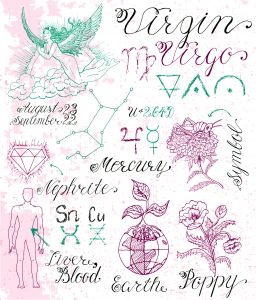 Virgin
Virgo
August 23
September 22
Symbol
Mercury
Nephrite
Sn Cu
Liver,
Blood
Earth
Poppy